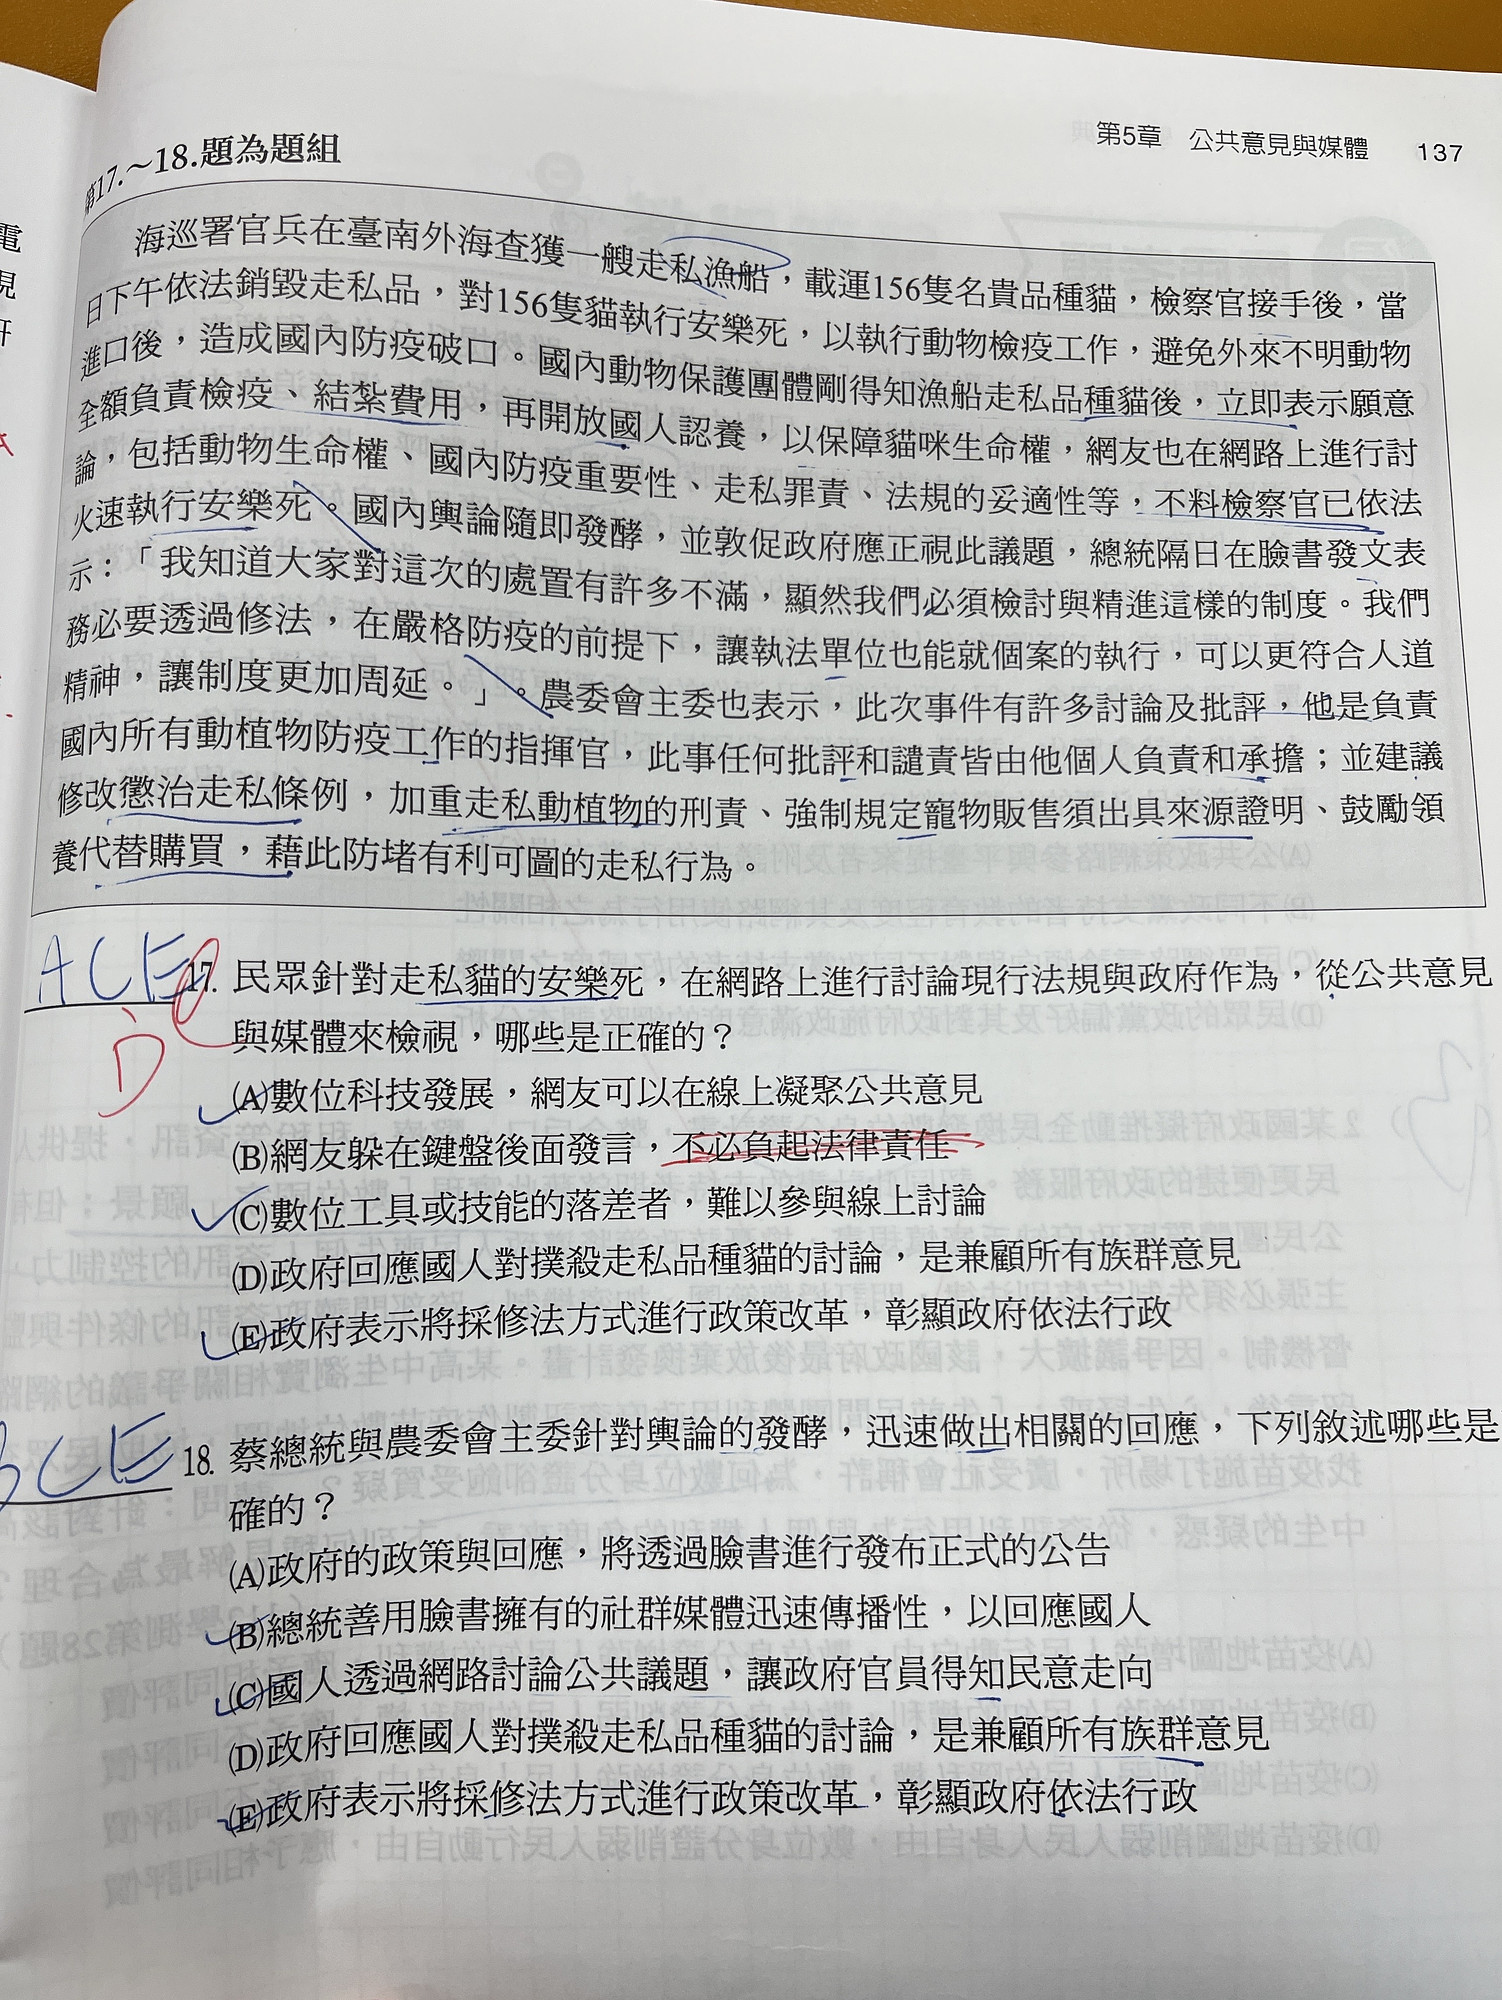 第5章 公共意見與媒體 137
第17.～18.題為題組
海巡署官兵在臺南外海查獲一艘走私漁船，載運156隻名貴品種貓，檢察官接手後，當
日下午依法銷毀走私品，對156隻貓執行安樂死，以執行動物檢疫工作，避免外來不明動物
進口後，造成國內防疫破口。國內動物保護團體剛得知漁船走私品種貓後，立即表示願意
全額負責檢疫、結紮費用，再開放國人認養，以保障貓咪生命權，網友也在網路上進行討
論，包括動物生命權、國內防疫重要性、走私罪責、法規的妥適性等，不料檢察官已依法
火速執行安樂死。國內輿論隨即發酵，並敦促政府應正視此議題，總統隔日在臉書發文表
示：「我知道大家對這次的處置有許多不滿，顯然我們必須檢討與精進這樣的制度。我們
務必要透過修法，在嚴格防疫的前提下，讓執法單位也能就個案的執行，可以更符合人道
精神，讓制度更加周延。」。農委會主委也表示，此次事件有許多討論及批評，他是負責
國內所有動植物防疫工作的指揮官，此事任何批評和譴責皆由他個人負責和承擔；並建議
修改懲治走私條例，加重走私動植物的刑責、強制規定寵物販售須出具來源證明、鼓勵領
養代替購買，藉此防堵有利可圖的走私行為。
ACE 17. 民眾針對走私貓的安樂死，在網路上進行討論現行法規與政府作為，從公共意見
D 與媒體來檢視，哪些是正確的？
(A)數位科技發展，網友可以在線上凝聚公共意見
(B)網友躲在鍵盤後面發言，不必負起法律責任
(C)數位工具或技能的落差者，難以參與線上討論
(D)政府回應國人對撲殺走私品種貓的討論，是兼顧所有族群意見
(E)政府表示將採修法方式進行政策改革，彰顯政府依法行政
BCE 18. 蔡總統與農委會主委針對輿論的發酵，迅速做出相關的回應，下列敘述哪些是
確的？
(A)政府的政策與回應，將透過臉書進行發布正式的公告
(B)總統善用臉書擁有的社群媒體迅速傳播性，以回應國人
(C)國人透過網路討論公共議題，讓政府官員得知民意走向
(D)政府回應國人對撲殺走私品種貓的討論，是兼顧所有族群意見
(E)政府表示將採修法方式進行政策改革，彰顯政府依法行政